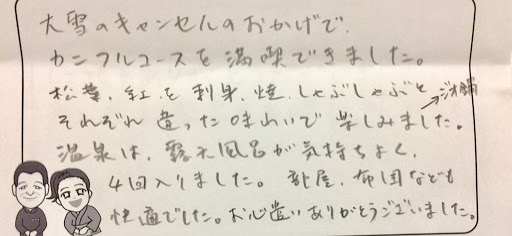 大雪のキャンセルのおかげで、
カニフルコースを満喫できました。
松葉、紅を刺身、焼、しゃぶしゃぶと
それぞれ違った味わいで楽しみました。
温泉は、露天風呂が気持ちよく、
4回入りました。部屋、布団なども
快適でした。お心遣いありがとうございました。